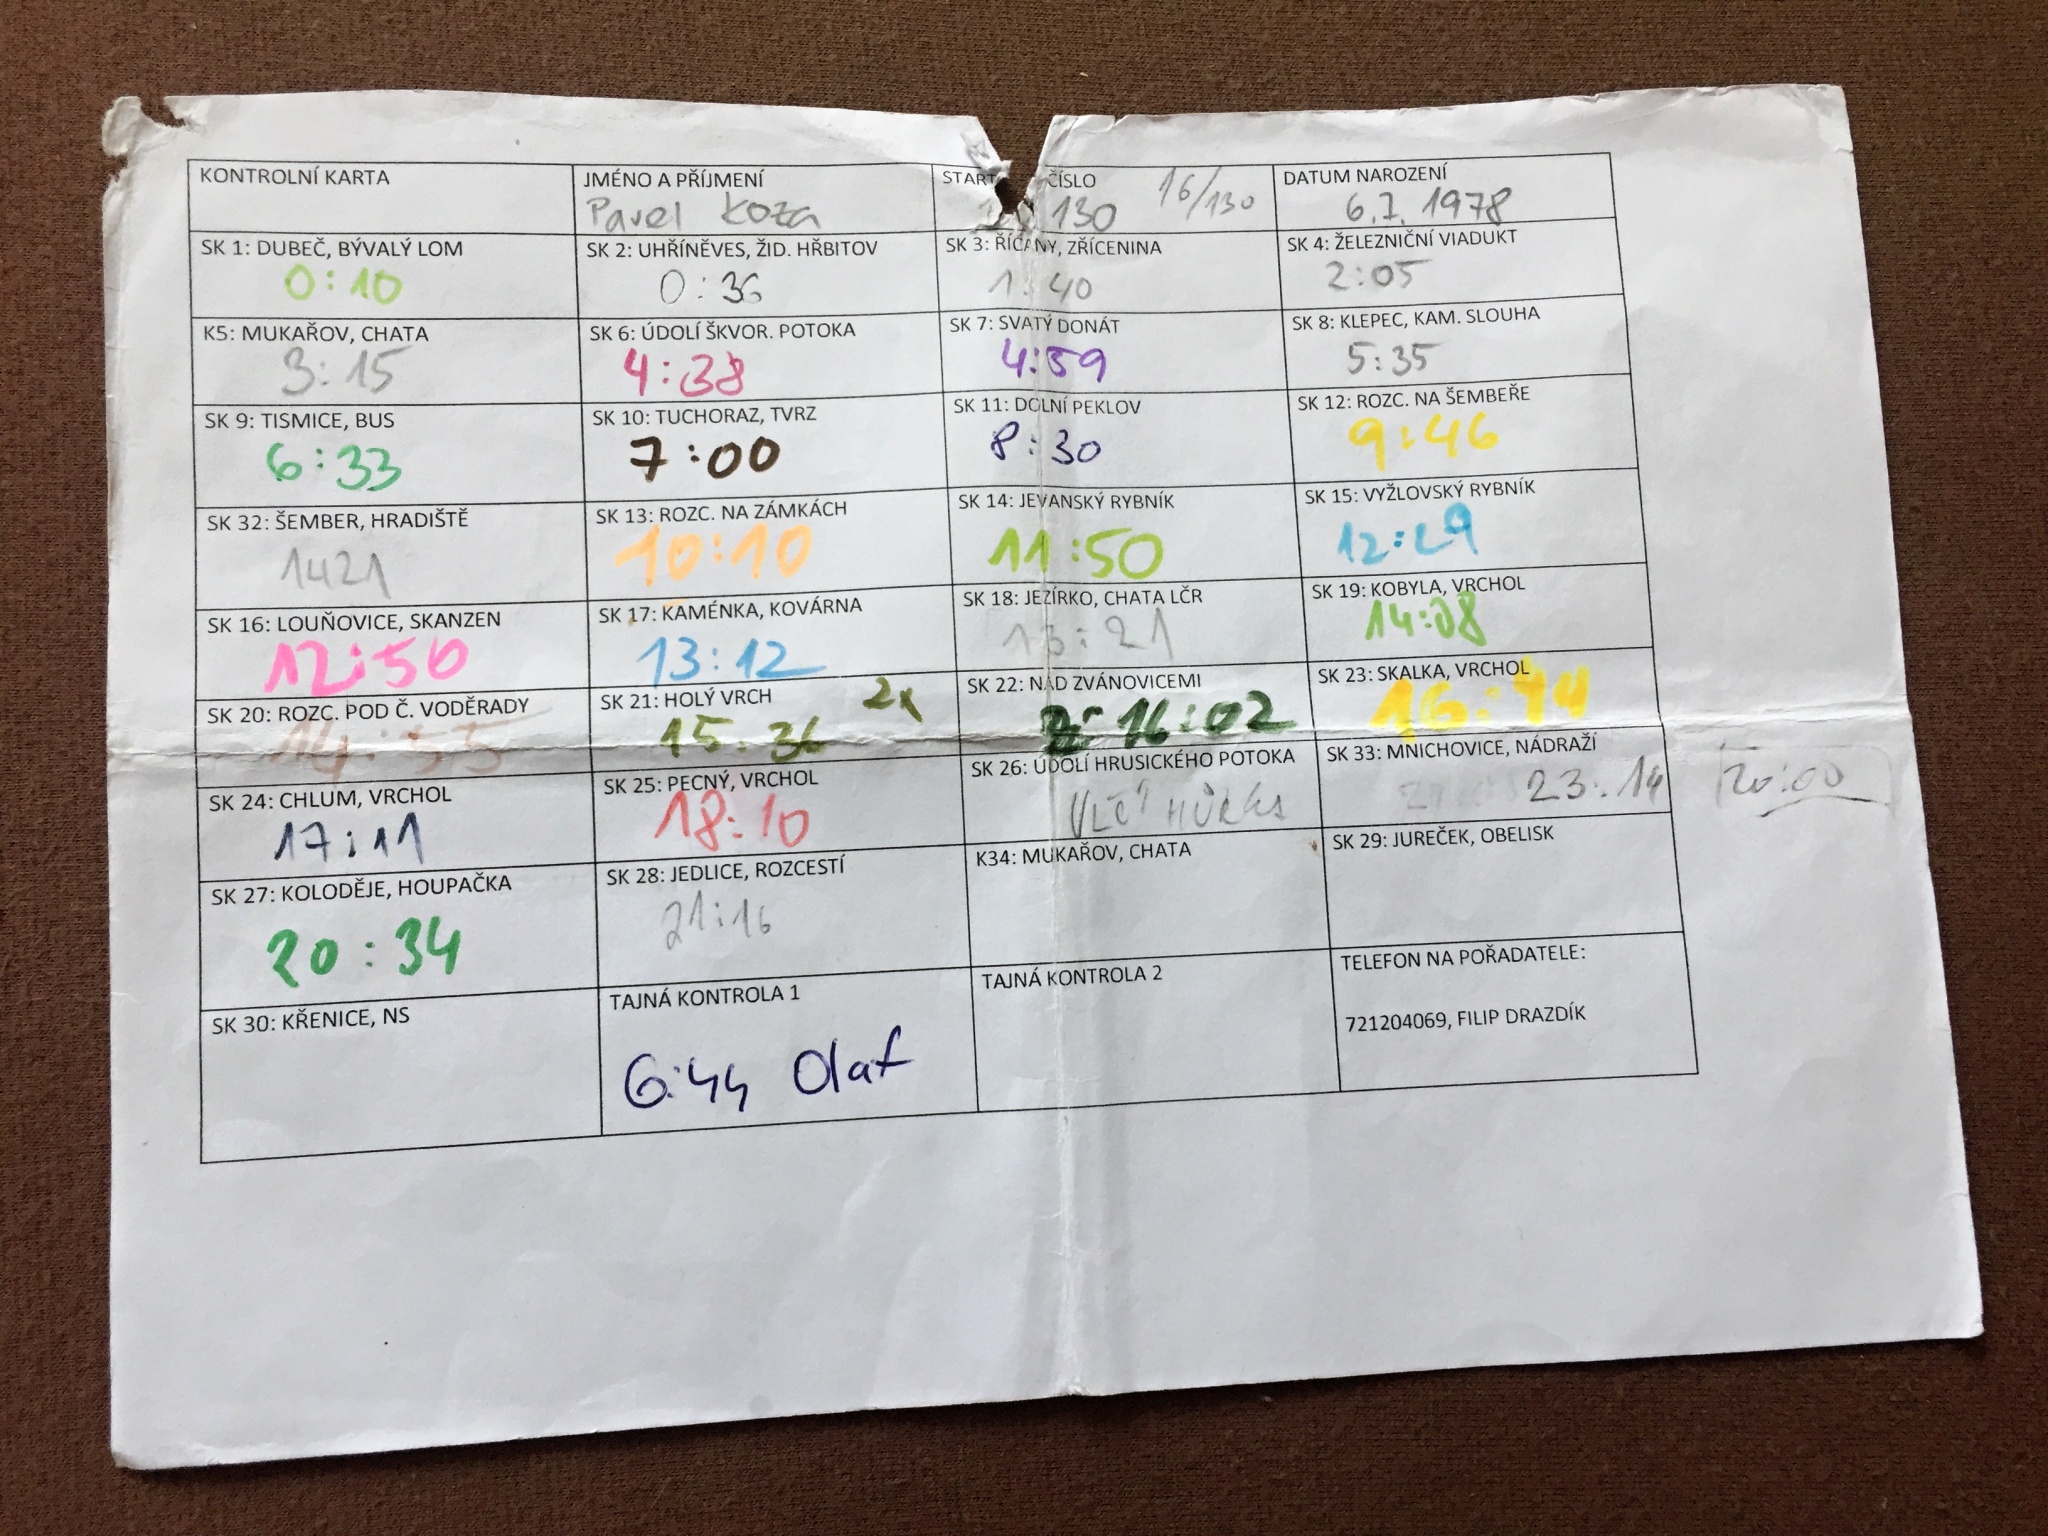 KONTROLNÍ KARTA
JMÉNO A PŘÍJMENÍ
Pavel Koza
START ČÍSLO 16/130
130
DATUM NAROZENÍ
6.7.1978
SK 1: DUBEČ, BÝVALÝ LOM
0:10
SK 2: UHŘÍNĚVES, ŽID. HŘBITOV
0:36
SK 3: ŘÍČANY, ZŘÍCENINA
1:40
SK 4: ŽELEZNIČNÍ VIADUKT
2:05
K5: MUKAŘOV, CHATA
3:15
SK 6: ÚDOLÍ ŠKVOR. POTOKA
4:38
SK 7: SVATÝ DONÁT
4:59
SK 8: KLEPEC, KAM. SLOUHA
5:35
SK 9: TISMICE, BUS
6:33
SK 10: TUCHORAZ, TVRZ
7:00
SK 11: DOLNÍ PEKLOV
8:30
SK 12: ROZC. NA ŠEMBEŘE
9:46
SK 32: ŠEMBER, HRADIŠTĚ
1421
SK 13: ROZC. NA ZÁMKÁCH
10:10
SK 14: JEVANSKÝ RYBNÍK
11:50
SK 15: VYŽLOVSKÝ RYBNÍK
12:29
SK 16: LOUŇOVICE, SKANZEN
12:56
SK 17: KAMÉNKA, KOVÁRNA
13:12
SK 18: JEZÍRKO, CHATA LČR
13:21
SK 19: KOBYLA, VRCHOL
14:08
SK 20: ROZC. POD Č. VODĚRADY
14:55
SK 21: HOLÝ VRCH 2x
15:36
SK 22: NAD ZVÁNOVICEMI
16:02
SK 23: SKALKA, VRCHOL
16:44
SK 24: CHLUM, VRCHOL
17:11
SK 25: PECNÝ, VRCHOL
18:10
SK 26: ÚDOLÍ HRUSICKÉHO POTOKA
VLČÍ HŮRKA
SK 33: MNICHOVICE, NÁDRAŽÍ
23:14 20:00
SK 27: KOLODĚJE, HOUPAČKA
20:34
SK 28: JEDLICE, ROZCESTÍ
21:16
K34: MUKAŘOV, CHATA
SK 29: JUREČEK, OBELISK
SK 30: KŘENICE, NS
TAJNÁ KONTROLA 1
6:44 Olaf
TAJNÁ KONTROLA 2
TELEFON NA POŘADATELE:
721204069, FILIP DRAZDÍK